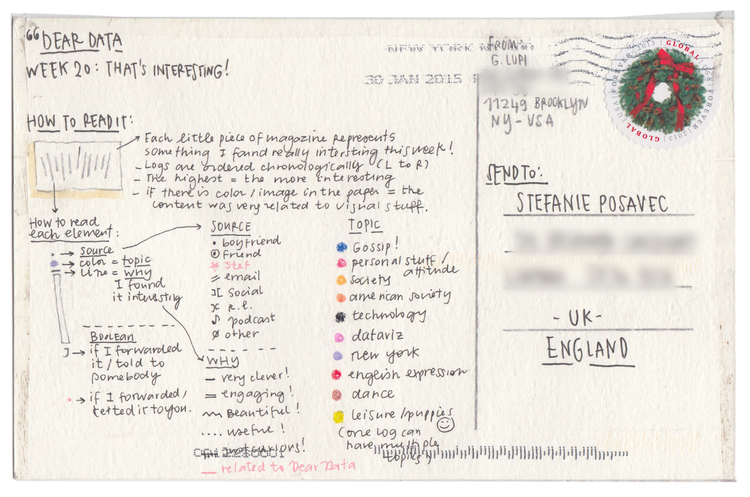 “DEAR DATA
WEEK 20: THAT'S INTERESTING!
NEW YORK
30 JAN 2015
FROM:
G. LUPI
11249 BROOKLYN
NY - USA
GLOBAL FOREVER 2013
GLOBAL
HOW TO READ IT:
Each little piece of magazine represents
something I found really intersting this week!
- Logs are ordered chronologically (L to R)
- The highest = the more interesting
- if there is color / image in the paper = the
content was very related to visual stuff.
SEND TO:
STEFANIE POSAVEC
- UK -
ENGLAND
How to read
each element:
source
color = topic
line = why
I found
it interesting
Boolean
if I forwarded
it / told to
somebody
if I forwarded/
texted it to you.
SOURCE
boyfriend
friend
Stef
email
Social
r.l.
podcast
other
WHY
very clever!
engaging!
Beautiful!
useful!
related to Dear Data
TOPIC
Gossip!
personal stuff /
attitude
society
american society
technology
dataviz
new york
english expression
dance
leisure / puppies
(one log can
have multiple
topics)